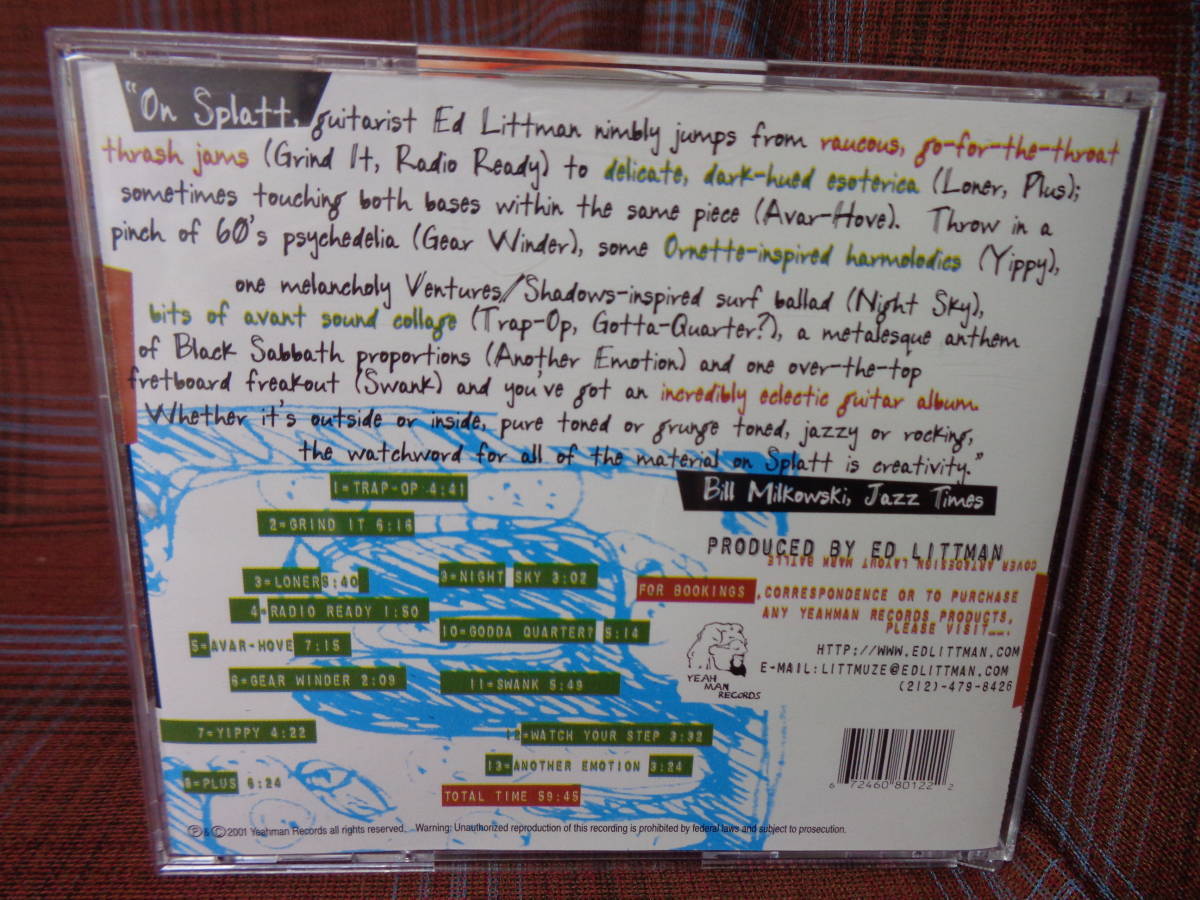 “On Splatt, guitarist Ed Littman nimbly jumps from raucous, go-for-the-throat
thrash jams (Grind It, Radio Ready) to delicate, dark-hued esoterica (Loner, Plus);
sometimes touching both bases within the same piece (Avar-Hove). Throw in a
pinch of 60's psychedelia (Gear Winder), some Ornette-inspired harmolodics (Yippy),
one melancholy Ventures/Shadows-inspired surf ballad (Night Sky),
bits of avant sound collage (Trap-Op, Gotta-Quarter?), a metalesque anthem
of Black Sabbath proportions (Another Emotion) and one over-the-top
fretboard freakout (Swank) and you've got an incredibly eclectic guitar album.
Whether it's outside or inside, pure toned or grunge toned, jazzy or rocking,
the watchword for all of the material on Splatt is creativity.”
Bill Milkowski, Jazz Times
1=TRAP-OP 4:41
2=GRIND IT 6:16
3=LONER 5:40
4=RADIO READY 1:50
5=AVAR-HOVE 7:15
6=GEAR WINDER 2:09
7=YIPPY 4:22
8=PLUS 6:24
9=NIGHT SKY 3:02
10=GODDA QUARTER? 5:14
11=SWANK 5:49
12=WATCH YOUR STEP 3:32
13=ANOTHER EMOTION 3:24
TOTAL TIME 59:45
PRODUCED BY ED LITTMAN
COVER ART/DESIGN LAYOUT MARK BATTLE
FOR BOOKINGS ,CORRESPONDENCE OR TO PURCHASE
ANY YEAHMAN RECORDS PRODUCTS,
PLEASE VISIT……
HTTP://WWW.EDLITTMAN.COM
E-MAIL:LITTMUZE@EDLITTMAN.COM
(212)-479-8426
YEAH
MAN
RECORDS
6 72460 80122 2
℗ & © 2001 Yeahman Records all rights reserved. Warning: Unauthorized reproduction of this recording is prohibited by federal laws and subject to prosecution.